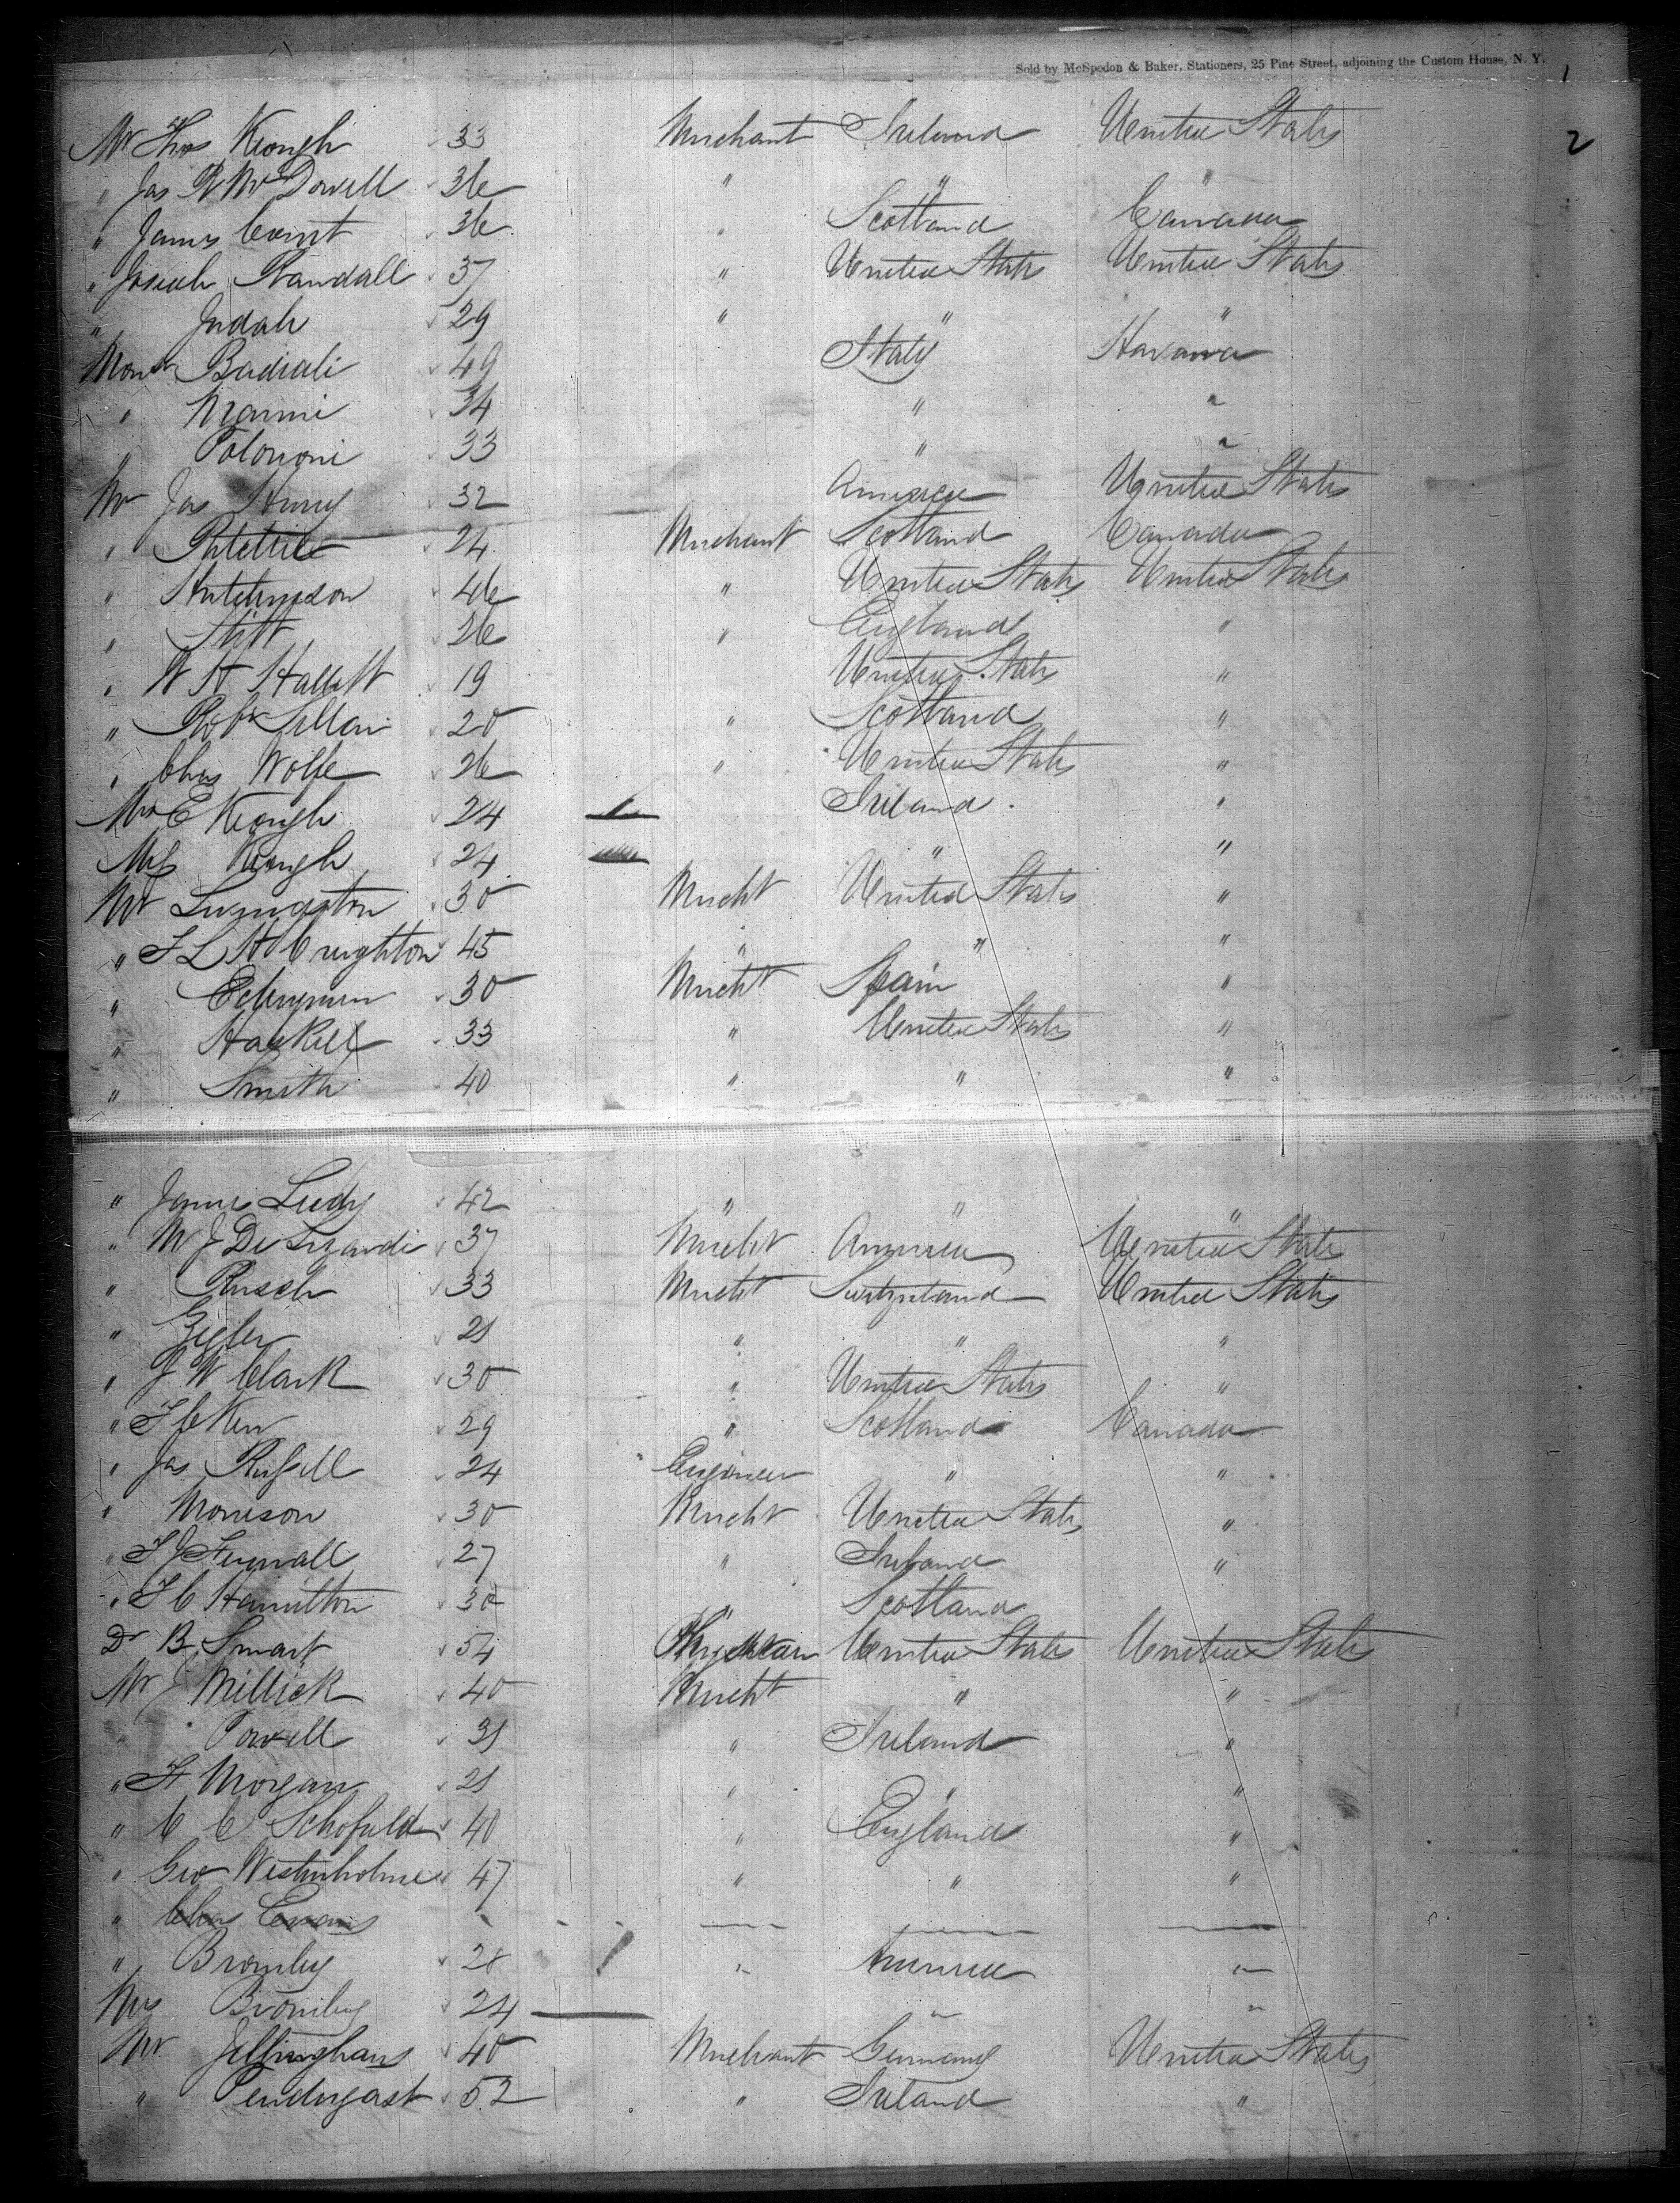 Sold by McSpedon & Baker, Stationers, 25 Pine Street, adjoining the Custom House, N. Y.
1
2
Mr Thos Keough 33 Merchant Ireland United States
" Jas R McDowell 36 " " "
" James Court 36 " Scotland Canada
" Josiah Randall 37 " United States United States
" Judah 29 " " "
Monsr Badiali 49 Italy Havana
" 34 " "
" 33 " "
Mr Jas Henry 32 America United States
" 24 Merchant Scotland Canada
" Hutchinson 46 " United States United States
" Stitt 26 " England "
" W H Hallett 19 United States "
" Robt 20 " Scotland "
" Chas Wolfe 26 " United States "
Mrs E Keough 24 Ireland "
Miss Keough 24 " "
Mr Livingston 30 Mercht United States "
" Creighton 45 " " "
" 30 Mercht Spain "
" Haskell 33 " United States "
" Smith 40 " " "
" James Leedy 42 " " "
" M J De Lizardi 37 Mercht America United States
" Rusch 33 Mercht United States
" 21 " " "
" J W Clark 30 " United States "
" Kerr 29 " Scotland Canada
" Jas Russell 24 Engineer " "
" Morrison 30 Mercht United States "
" 27 " Ireland "
" Hamilton 30 " Scotland
Dr B Smart 54 Physician United States United States
Mr J Millick 40 Mercht " "
" Powell 31 " Ireland "
" H Morgan 21 " " "
" C C Schofield 40 " England "
" Geo Westenholme 47 " " "
" Chas Evans - - - — — —
" Bromley 28 " America "
Mrs Bromley 24 — " "
Mr Jellinghaus 40 Merchant Germany United States
" Pendergast 52 " Ireland "